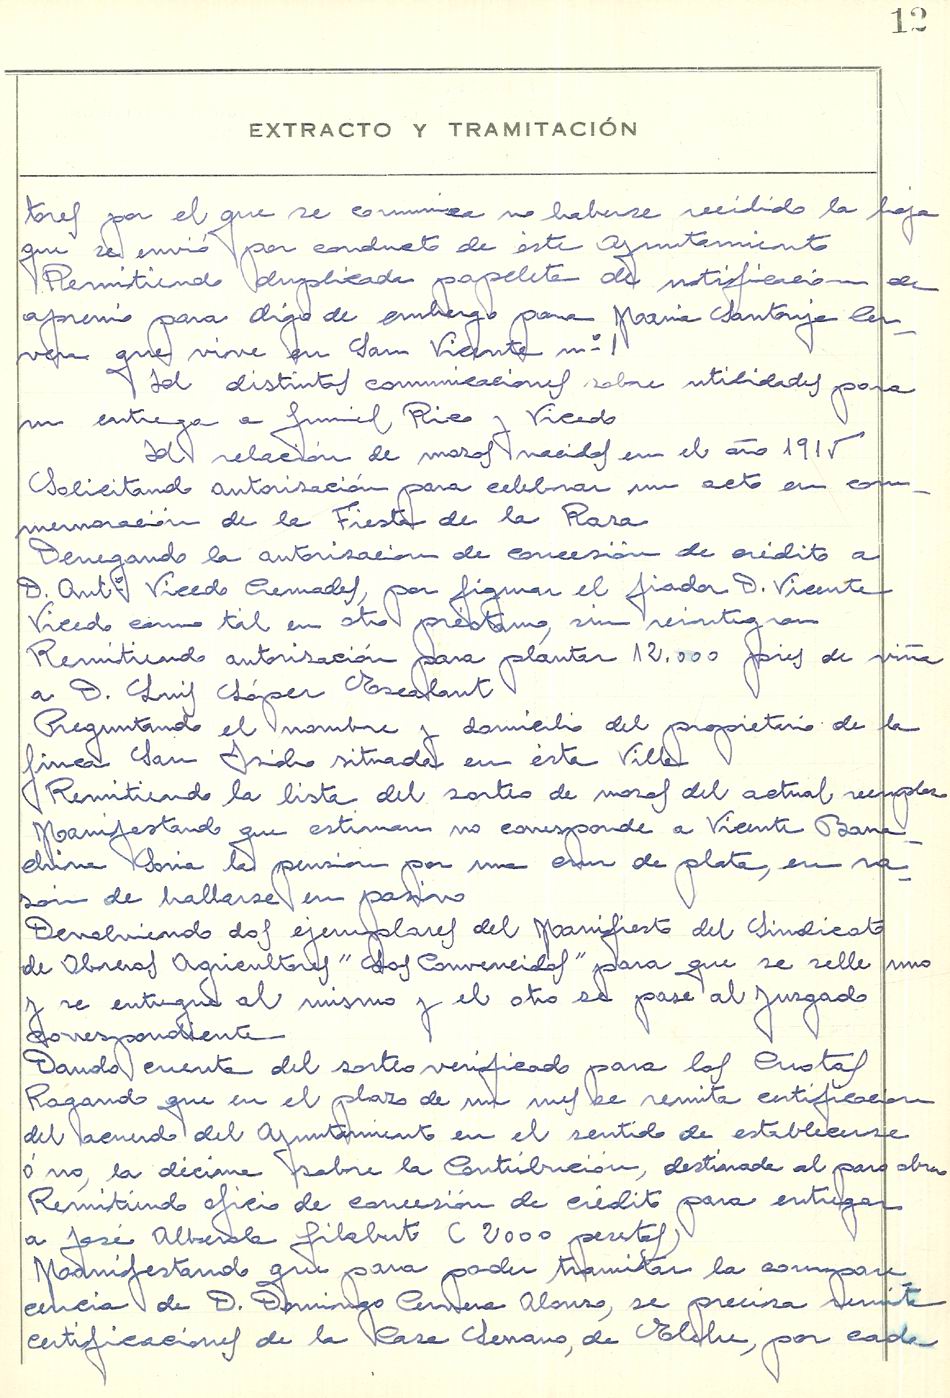 12
EXTRACTO Y TRAMITACIÓN
tores por el que se comunica no haberse recibido la hoja
que se envió por conducto de éste Ayuntamiento
Remitiendo duplicada papeleta de notificación de
apremio para digo de embargo para Maria Santonja Cer-
vera que vive en San Vicente nº 1
Id distintas comunicaciones sobre utilidades para
su entrega a Juniel Rico y Vicedo
Id relación de mozos nacidos en el año 1915
Solicitando autorización para celebrar un acto en con-
memoración de la Fiesta de la Raza
Denegando la autorización de concesión de crédito a
D. Antº Vicedo Cremades, por figurar el fiador D. Vicente
Vicedo como tal en otro préstamo, sin reintegrar
Remitiendo autorización para plantar 12.000 pies de viña
a D. Luis López Escalant
Preguntando el nombre y domicilio del propietario de la
finca San Isidro situada en ésta Villa
Remitiendo la lista del sorteo de mozos del actual reemplazo
Manifestando que estiman no corresponde a Vicente Bara-
china Soria la pensión por una cruz de plata, en ra-
zón de hallarse en pasivo
Devolviendo dos ejemplares del Manifiesto del Sindicato
de Obreros Agricultores "Los Convencidos" para que se selle uno
y se entregue al mismo y el otro se pase al Juzgado
correspondiente
Dando cuenta del sorteo verificado para los Cuotas
Rogando que en el plazo de un mes se remita certificación
del acuerdo del Ayuntamiento en el sentido de establecerse
ó no, la décima sobre la Contribución, destinada al paro obrero
Remitiendo oficio de concesión de crédito para entregar
a José Alberola Gilabert (2000 pesetas)
Manifestando que para poder tramitar la compare-
cencia de D. Domingo Cervera Alonso, se precisa remita
certificaciones de la Casa Serrano, de Elche, por cada